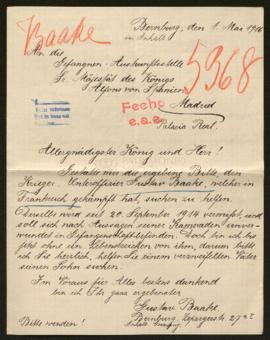 Baake
Bernburg, den 1. Mai 1916
in Anhalt
An die
Gefangenen-Auskunftsstelle
Sr. Majestät des Königs
Alfons von Spanien
5368
Madrid
Fecho
e.a.e.
Palacio Real.
Allergnädigster König und Herr!
Gestatte mir die ergebene Bitte, den
Krieger, Unteroffizier Gustav Baake, welcher in
Frankreich gekämpft hat, suchen zu helfen.
Derselbe wird seit 20. September 1914 vermißt, und
soll sich nach Aussagen seiner Kameraden unver-
wundet in Gefangenschaft befinden. Doch bin ich bis
jetzt ohne ein Lebenszeichen von ihm, darum bitte
ich Sie herzlich, helfen Sie einem verzweifelten Vater
seinen Sohn suchen.
Im Voraus für Alles bestens dankend
bin ich Ihr ganz ergebenster
Gustav Baake,
Bernburg, 27
Bitte wenden!